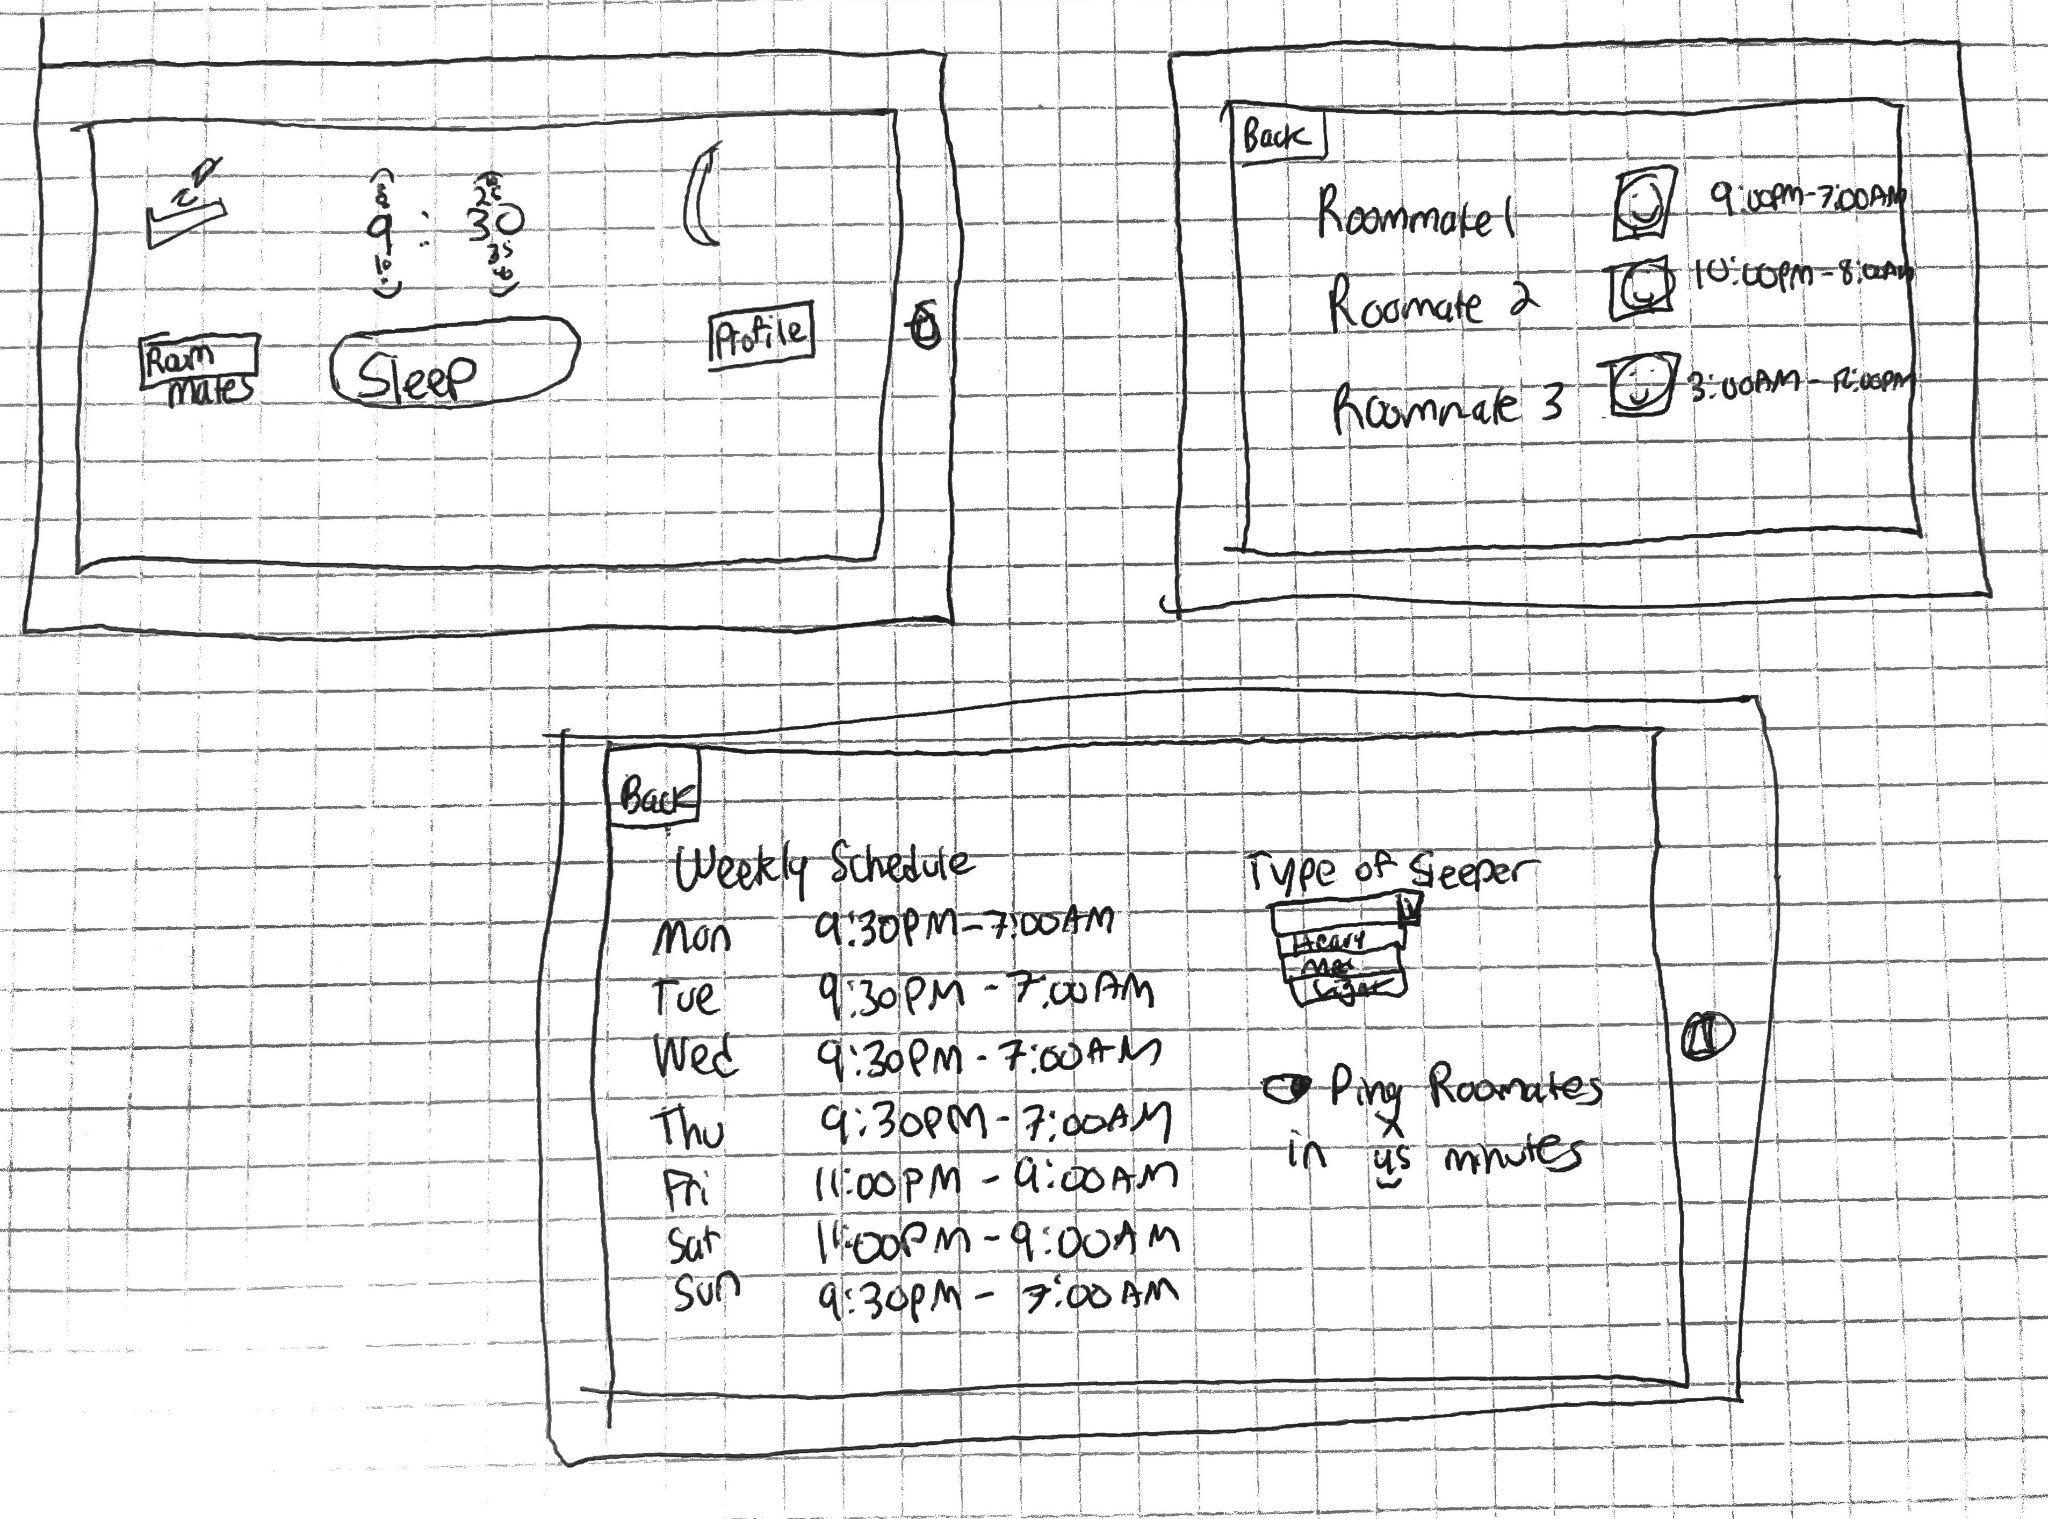 9 : 30
25
35
10
Room
mates
Sleep
Profile
Back
Roommate 1 9:00PM-7:00AM
Roomate 2 10:00PM-8:00AM
Roommate 3 3:00AM-12:00PM
Back
Weekly Schedule
Mon 9:30PM-7:00AM
Tue 9:30PM-7:00AM
Wed 9:30PM-7:00AM
Thu 9:30PM-7:00AM
Fri 11:00PM-9:00AM
Sat 11:00PM-9:00AM
Sun 9:30PM-7:00AM
Type of Sleeper
Heavy
Med
Light
Ping Roomates
in 45 minutes